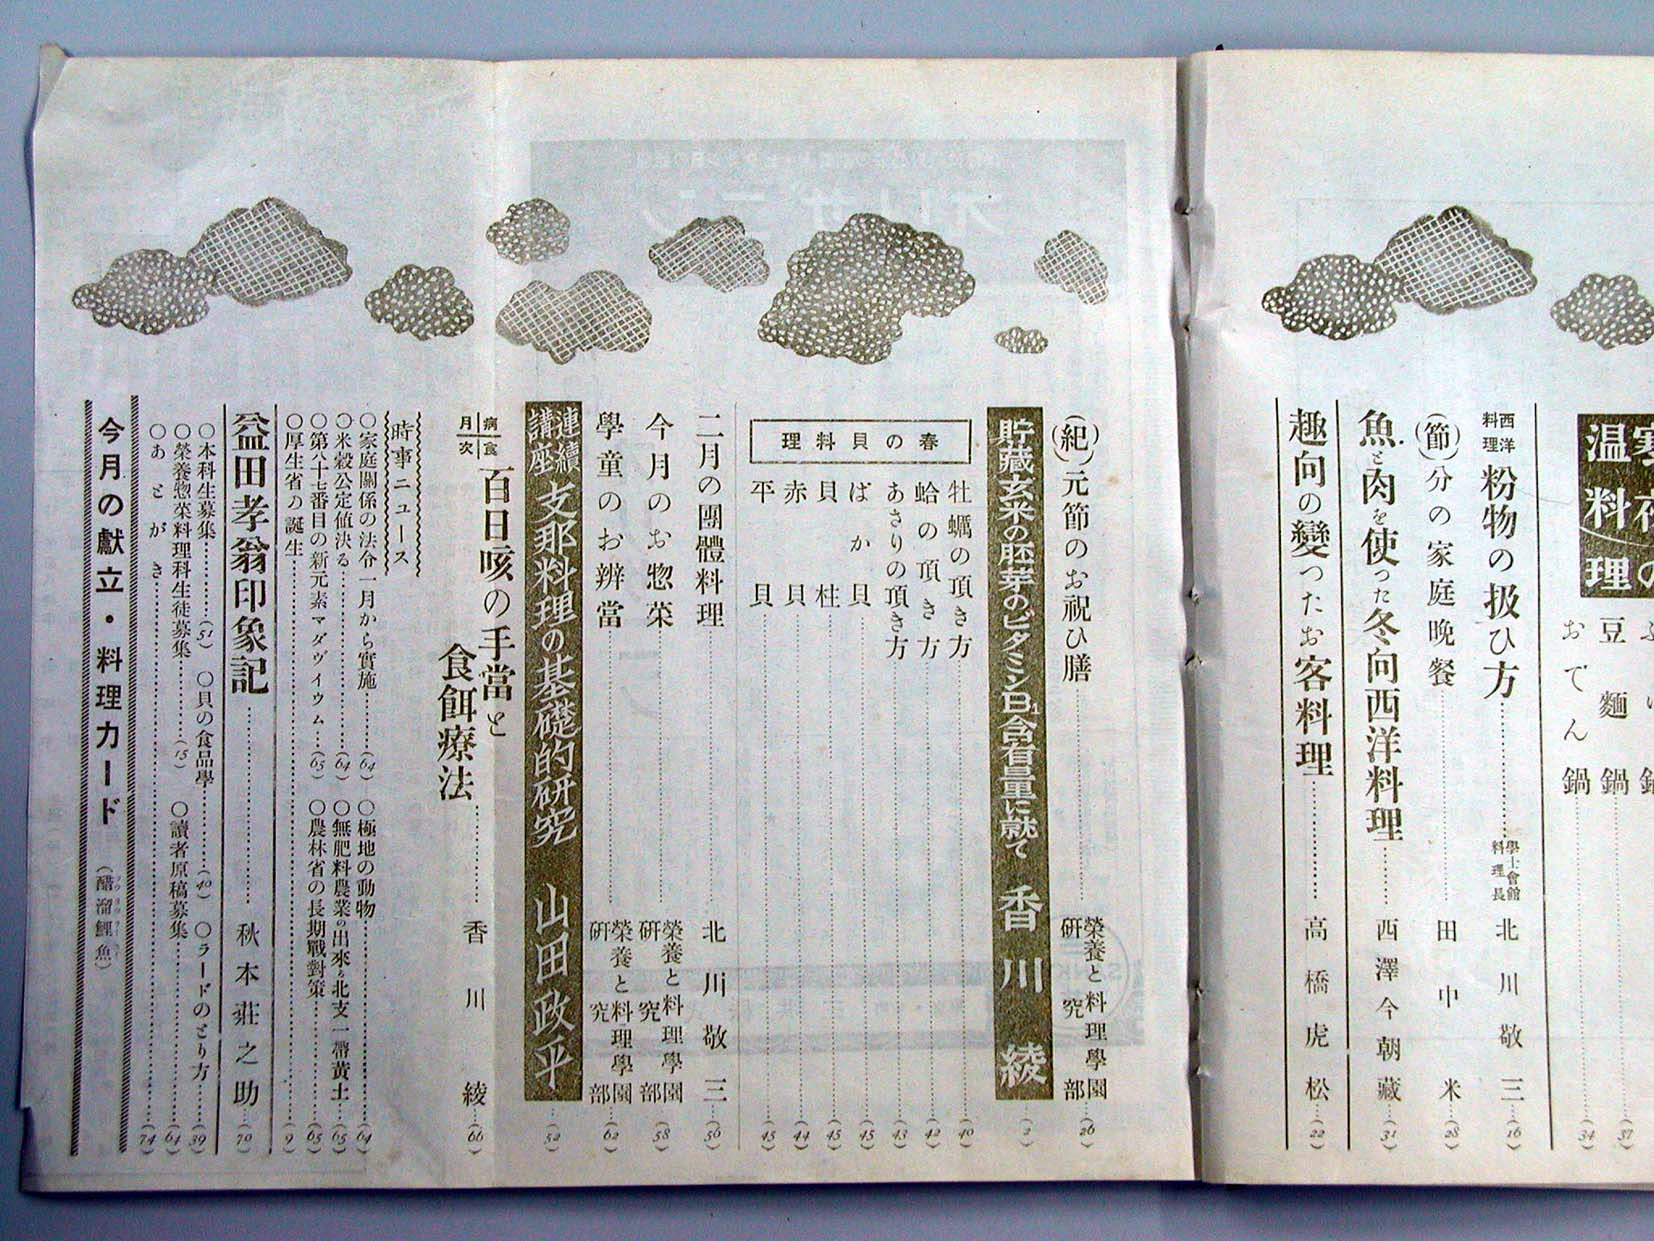 温料理
豆麵鍋……(34)
おでん鍋
西洋料理 粉物の扱ひ方……學士會館料理長 北川敬三…(16)
(節)分の家庭晚餐 田中米…(28)
魚と肉を使つた冬向西洋料理……西澤今朝藏…(31)
趣向の變つたお客料理……高橋虎松…(22)
(紀)元節のお祝ひ膳……榮養と料理學園硏究部…(26)
貯藏玄米の胚芽のビタミンB1含有量に就て 香川綾…(2)
春の貝料理
牡蠣の頂き方……(40)
蛤の頂き方……(42)
あさりの頂き方……(43)
ばか貝……(45)
貝柱……(45)
赤貝……(44)
平貝……(45)
二月の團體料理……北川敬三…(56)
今月のお惣菜……榮養と料理學園硏究部…(58)
學童のお辨當……榮養と料理學園硏究部…(62)
連續講座 支那料理の基礎的研究 山田政平…(52)
病食月次 百日咳の手當と食餌療法……香川綾…(66)
時事ニュース
○家庭關係の法令一月から實施……(64) ○極地の動物……(64)
○米穀公定値決る……(64) ○無肥料農業の出來る北支一帶黃土…(65)
○第八十七番目の新元素マダヴイウム…(65) ○農林省の長期戰對策……(65)
○厚生省の誕生……(9)
益田孝翁印象記……秋本莊之助…(70)
○本科生募集……(51) ○貝の食品學……(40) ○ラードのとり方……(39)
○榮養惣菜料理科生徒募集……(15) ○讀者原稿募集……(64)
○あとがき……(74)
今月の獻立・料理カード(醋溜鯉魚)